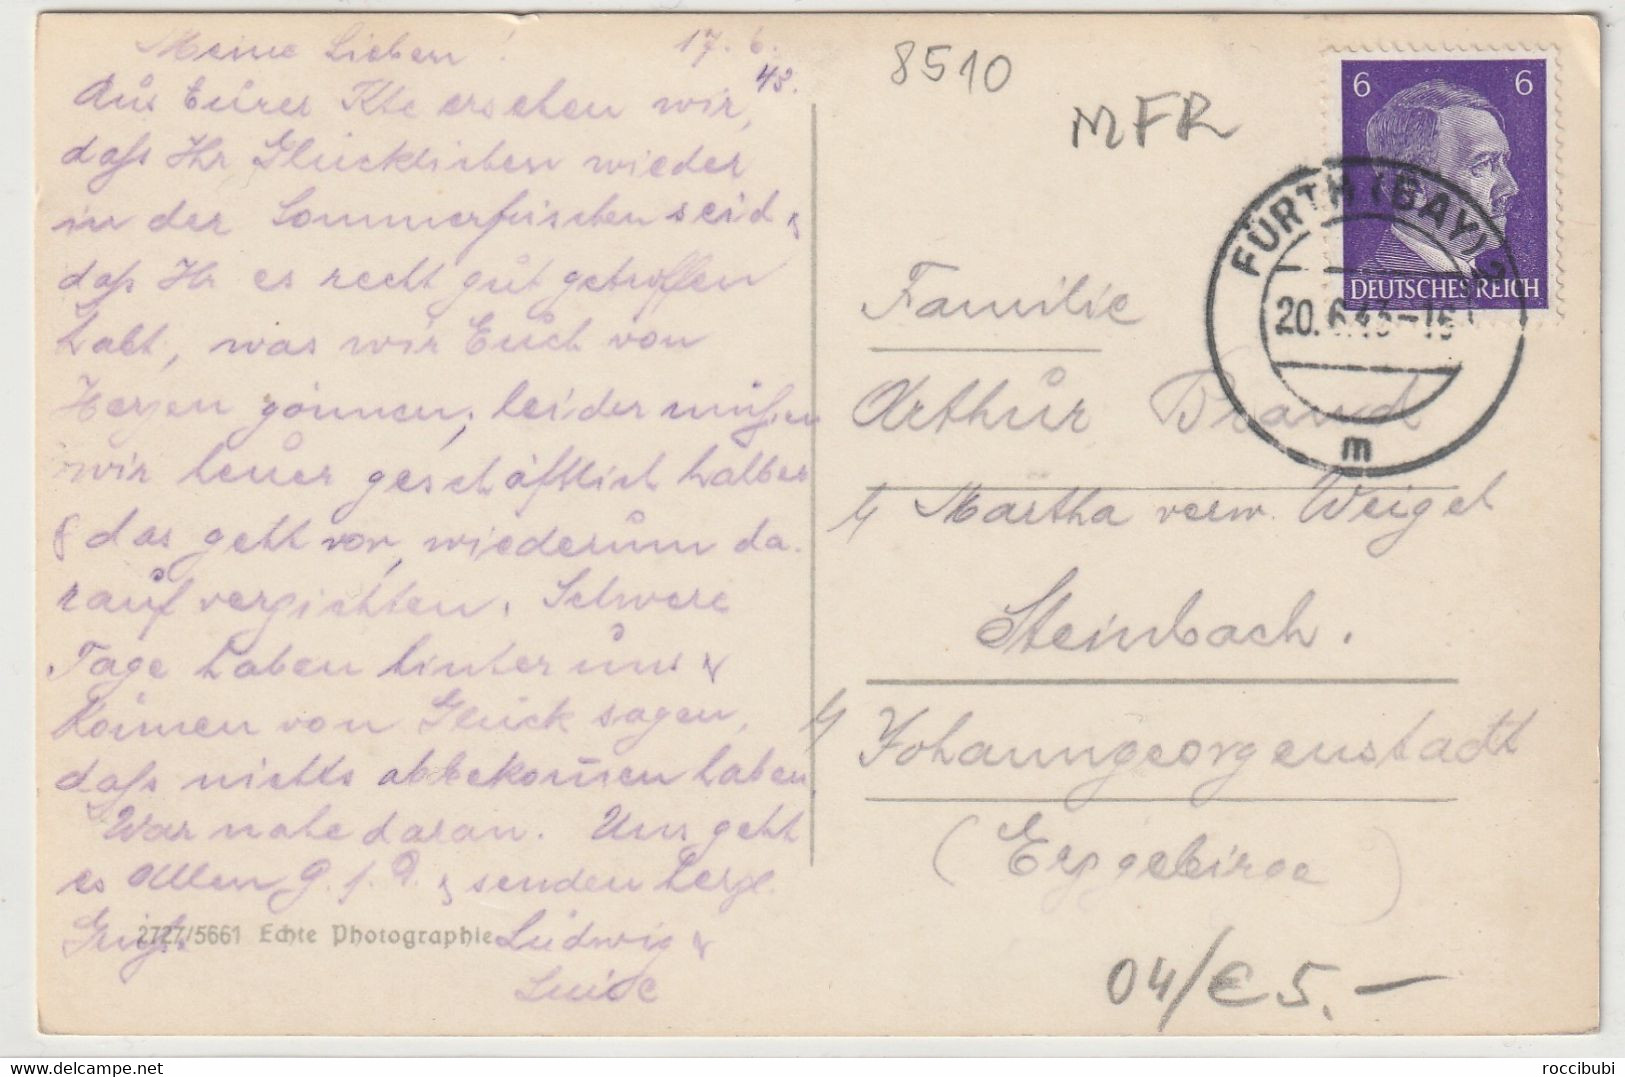 Meine Lieben! 17. 6.
43.
Aus Eurer Kte ersehen wir,
daß Ihr Glücklichen wieder
in der Sommerfrischen seid &
daß Ihr es recht gut getroffen
habt, was wir Euch von
Herzen gönnen, leider müßen
wir heuer geschäftlich halber
& das geht vor, wiederum da-
rauf verzichten. Schwere
Tage haben hinter uns &
können von Glück sagen,
daß nichts abbekommen haben.
War nahe daran. Uns geht
es Allen G. s. D. & senden herzl.
Grüße Ludwig &
Luise
2727/5661 Echte Photographie
8510
MFR
6 6
DEUTSCHES REICH
FÜRTH (BAY) 2
20.6.43-15
m
Familie
Arthur Brand
b/ Martha verw. Weigel
Steinbach.
b/ Johanngeorgenstadt
(Erzgebirge)
04/€ 5.-
roccibubi